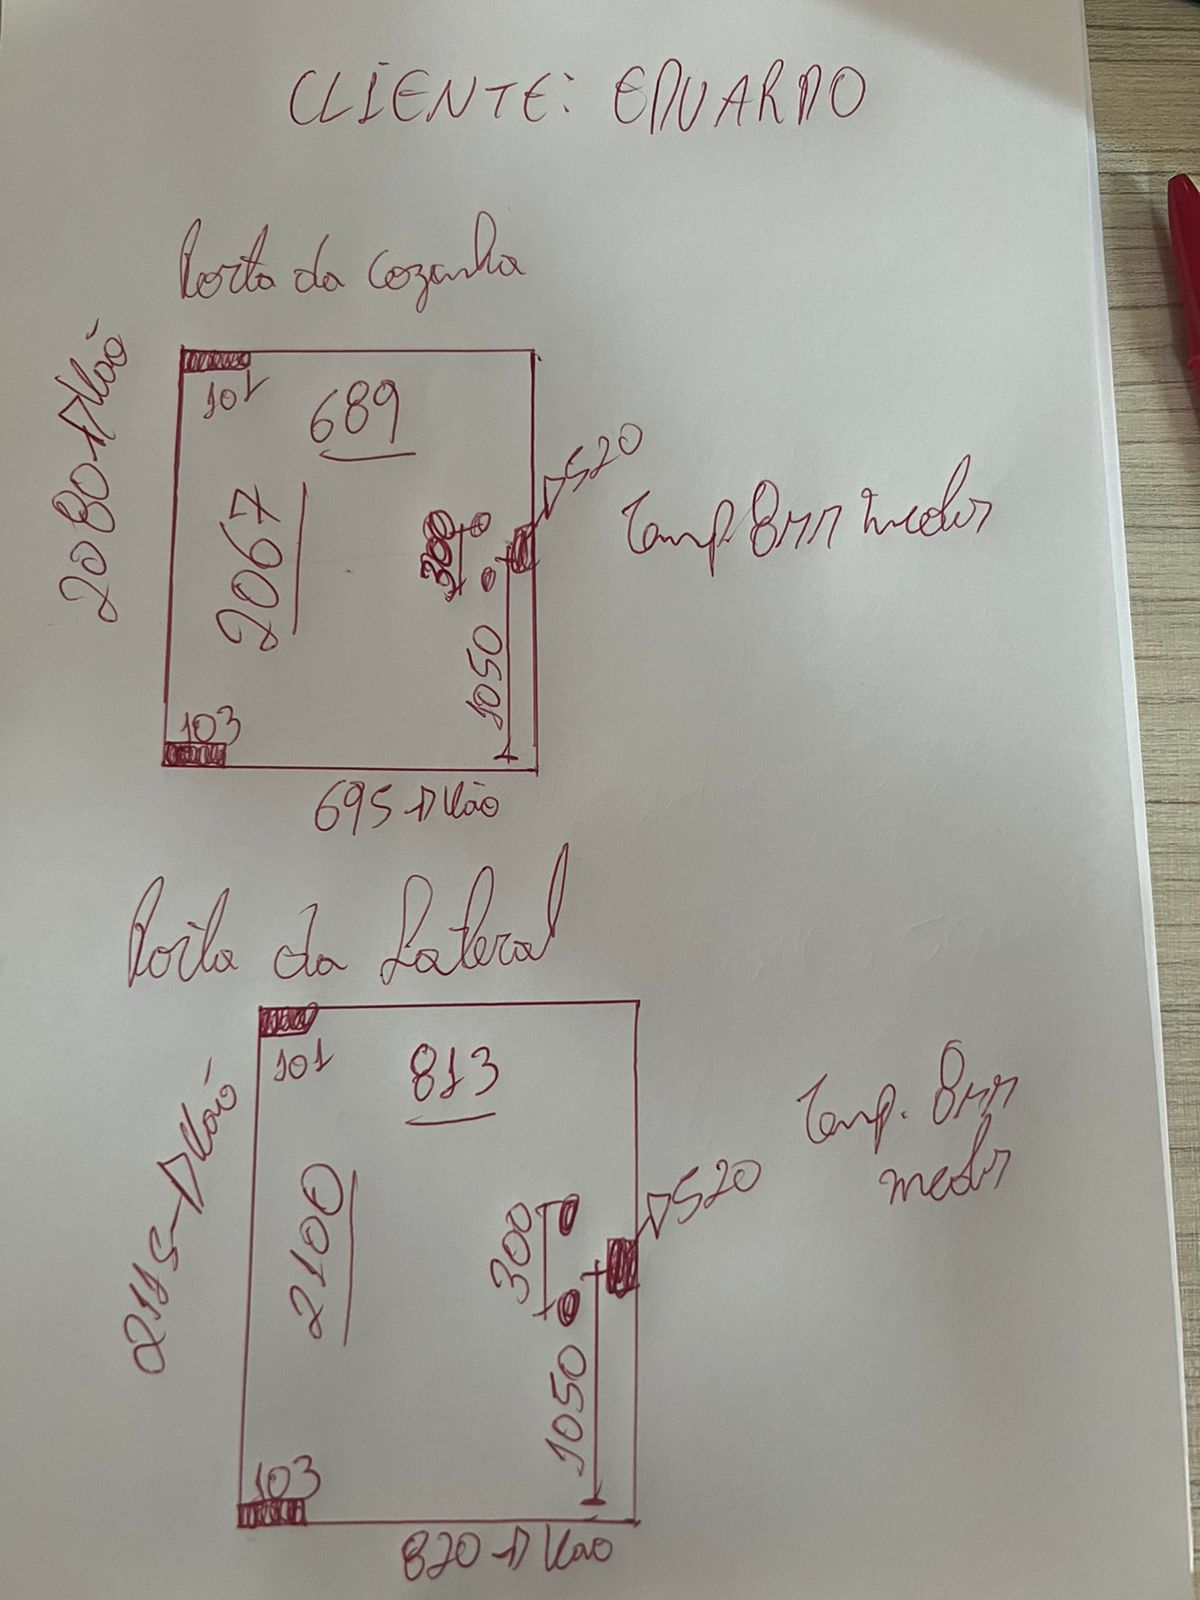 CLIENTE: EDUARDO
Porta da Cozinha
2080 → Vão
101
689
2067
300
→ 520
Temp. 8mm incolor
1050
103
695 → Vão
Porta da Lateral
2115 → Vão
101
813
2100
300
→ 520
Temp. 8mm
incolor
1050
103
820 → Vão